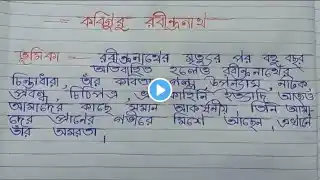 কবিগুরু রবীন্দ্রনাথ
ভূমিকা - রবীন্দ্রনাথের মৃত্যুর পর বহু বছর
অতিবাহিত হলেও রবীন্দ্রনাথের
চিন্তাধারা, তাঁর কবিতা, গল্প, উপন্যাস, নাটক,
প্রবন্ধ, চিঠিপত্র, ভ্রমণকাহিনি ইত্যাদি আজও
আমাদের কাছে সমান আকর্ষনীয়, তিনি আমা-
দের প্রাণের গভীরে মিশে আছেন, এখানে
তাঁর অমরতা।